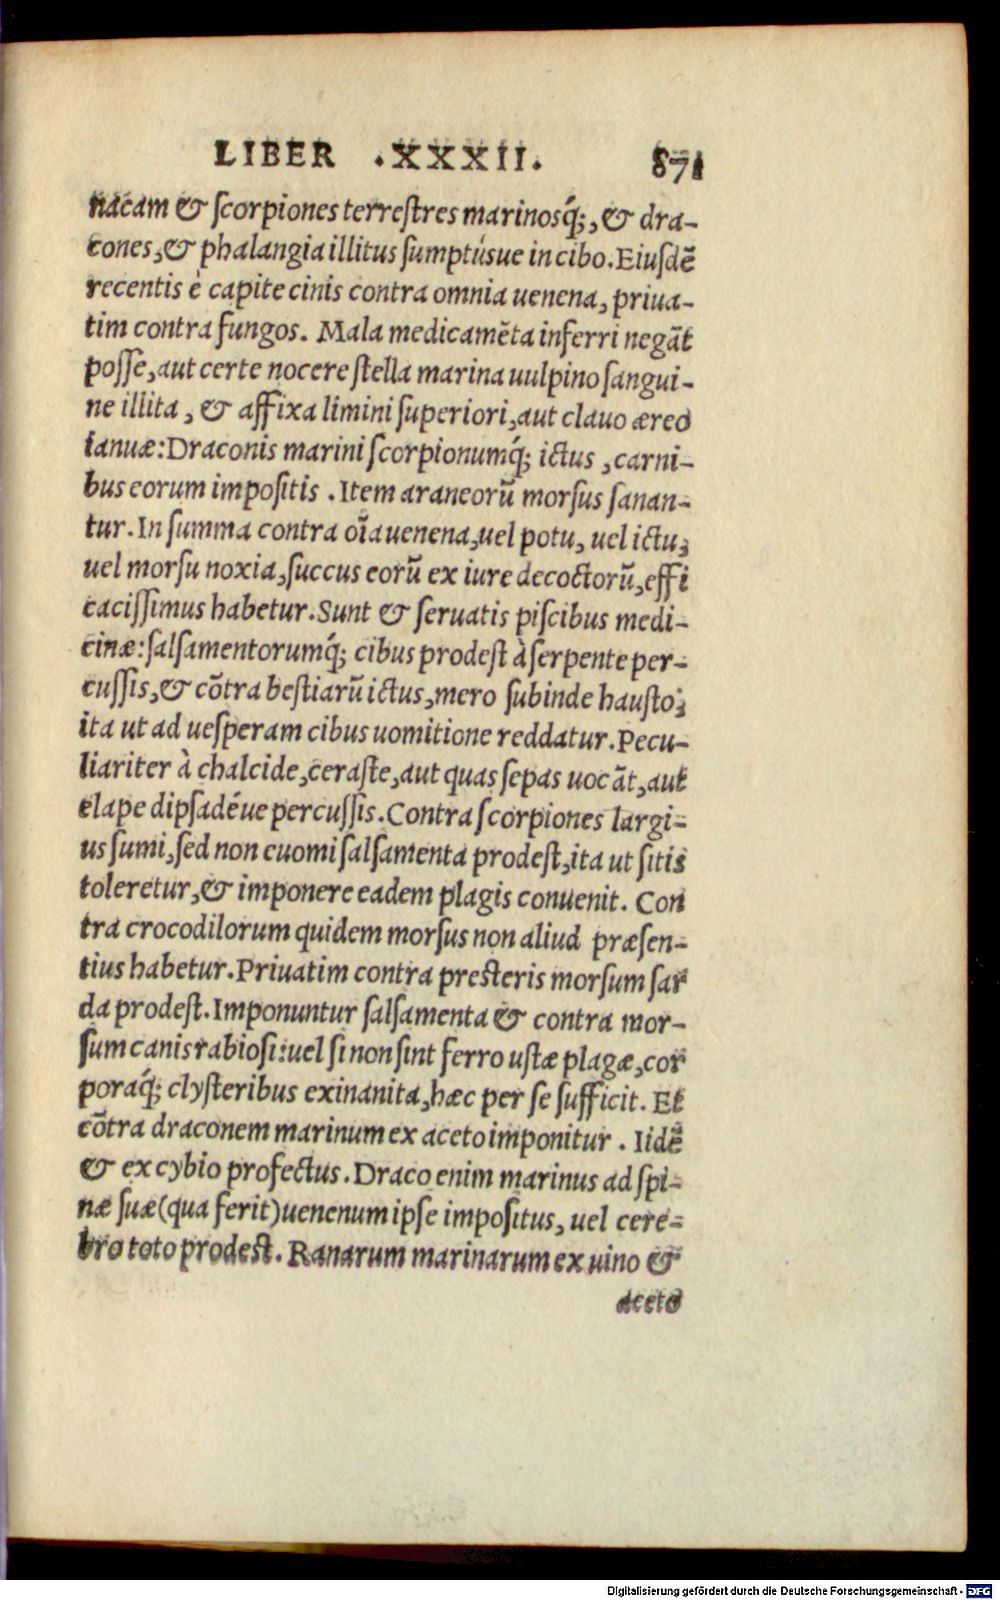 LIBER .XXXII. 871
nacam & ſcorpiones terreſtres marinosq́;, & dra-
cones, & phalangia illitus ſumptúsue in cibo. Eiuſdē
recentis è capite cinis contra omnia uenena, priua-
tim contra fungos. Mala medicamēta inferri negāt
poſſe, aut certe nocere ſtella marina uulpino ſangui-
ne illita, & affixa limini ſuperiori, aut clauo æreo
ianuæ: Draconis marini ſcorpionumq́; ictus, carni-
bus eorum impoſitis. Item araneorū morſus ſanan-
tur. In ſumma contra oīa uenena, uel potu, uel ictu,
uel morſu noxia, ſuccus eorū ex iure decoctorū, effi
caciſſimus habetur. Sunt & ſeruatis piſcibus medi-
cinæ: ſalſamentorumq́; cibus prodeſt à ſerpente per-
cuſſis, & cōtra beſtiarū ictus, mero ſubinde hauſto,
ita ut ad ueſperam cibus uomitione reddatur. Pecu-
liariter à chalcide, ceraſte, aut quas ſepas uocāt, aut
elape dipſadēue percuſſis. Contra ſcorpiones largi-
us ſumi, ſed non euomi ſalſamenta prodeſt, ita ut ſitis
toleretur, & imponere eadem plagis conuenit. Con
tra crocodilorum quidem morſus non aliud præſen-
tius habetur. Priuatim contra preſteris morſum ſar
da prodeſt. Imponuntur ſalſamenta & contra mor-
ſum canis rabioſi: uel ſi non ſint ferro uſtæ plagæ, cor
poraq́; clyſteribus exinanita, hæc per ſe ſufficit. Et
cōtra draconem marinum ex aceto imponitur. Iidē
& ex cybio profectus. Draco enim marinus ad ſpi-
næ ſuæ (qua ferit) uenenum ipſe impoſitus, uel cere-
bro toto prodeſt. Ranarum marinarum ex uino &
aceto
Digitalisierung gefördert durch die Deutsche Forschungsgemeinschaft - DFG